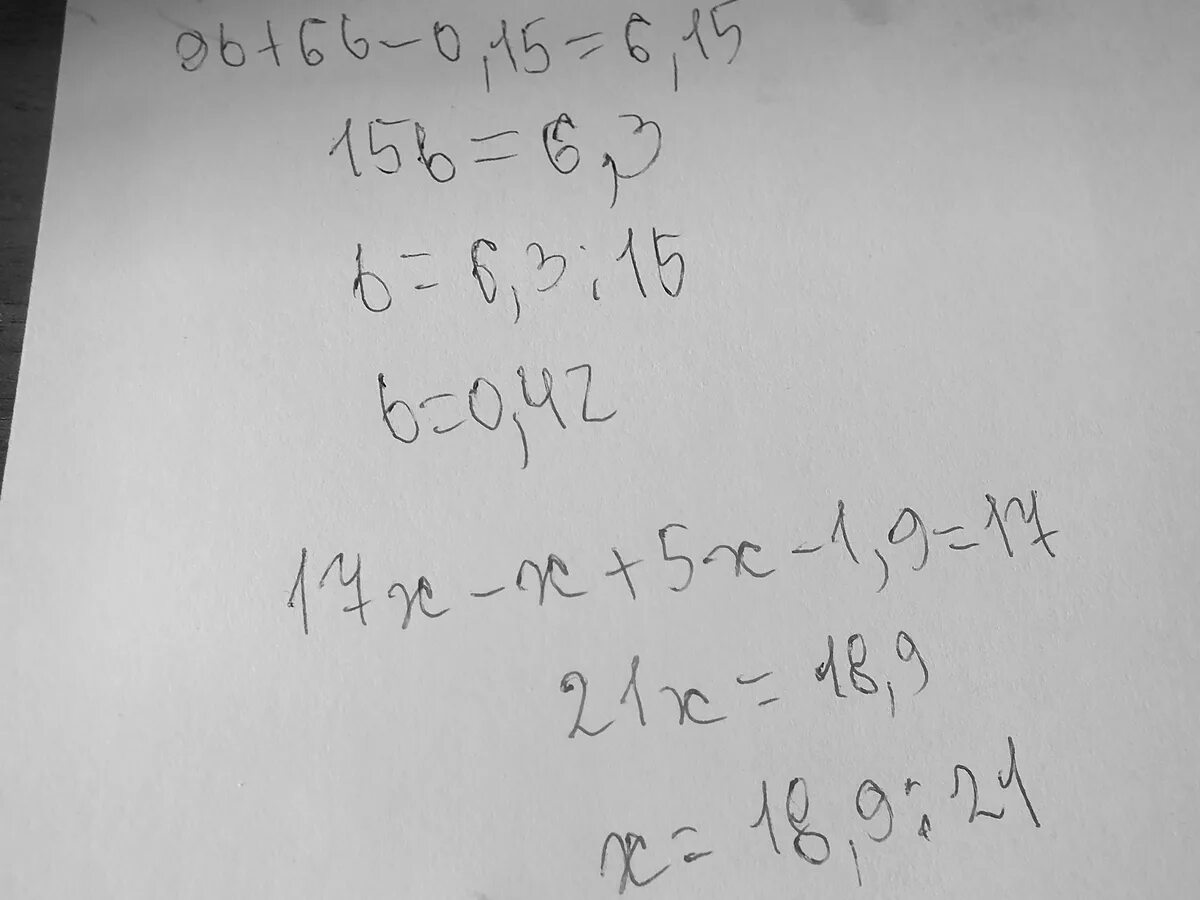 9b+6b-0,15=6,15
15b=6,3
b=6,3:15
b=0,42
17x-x+5x-1,9=17
21x=18,9
x=18,9:21